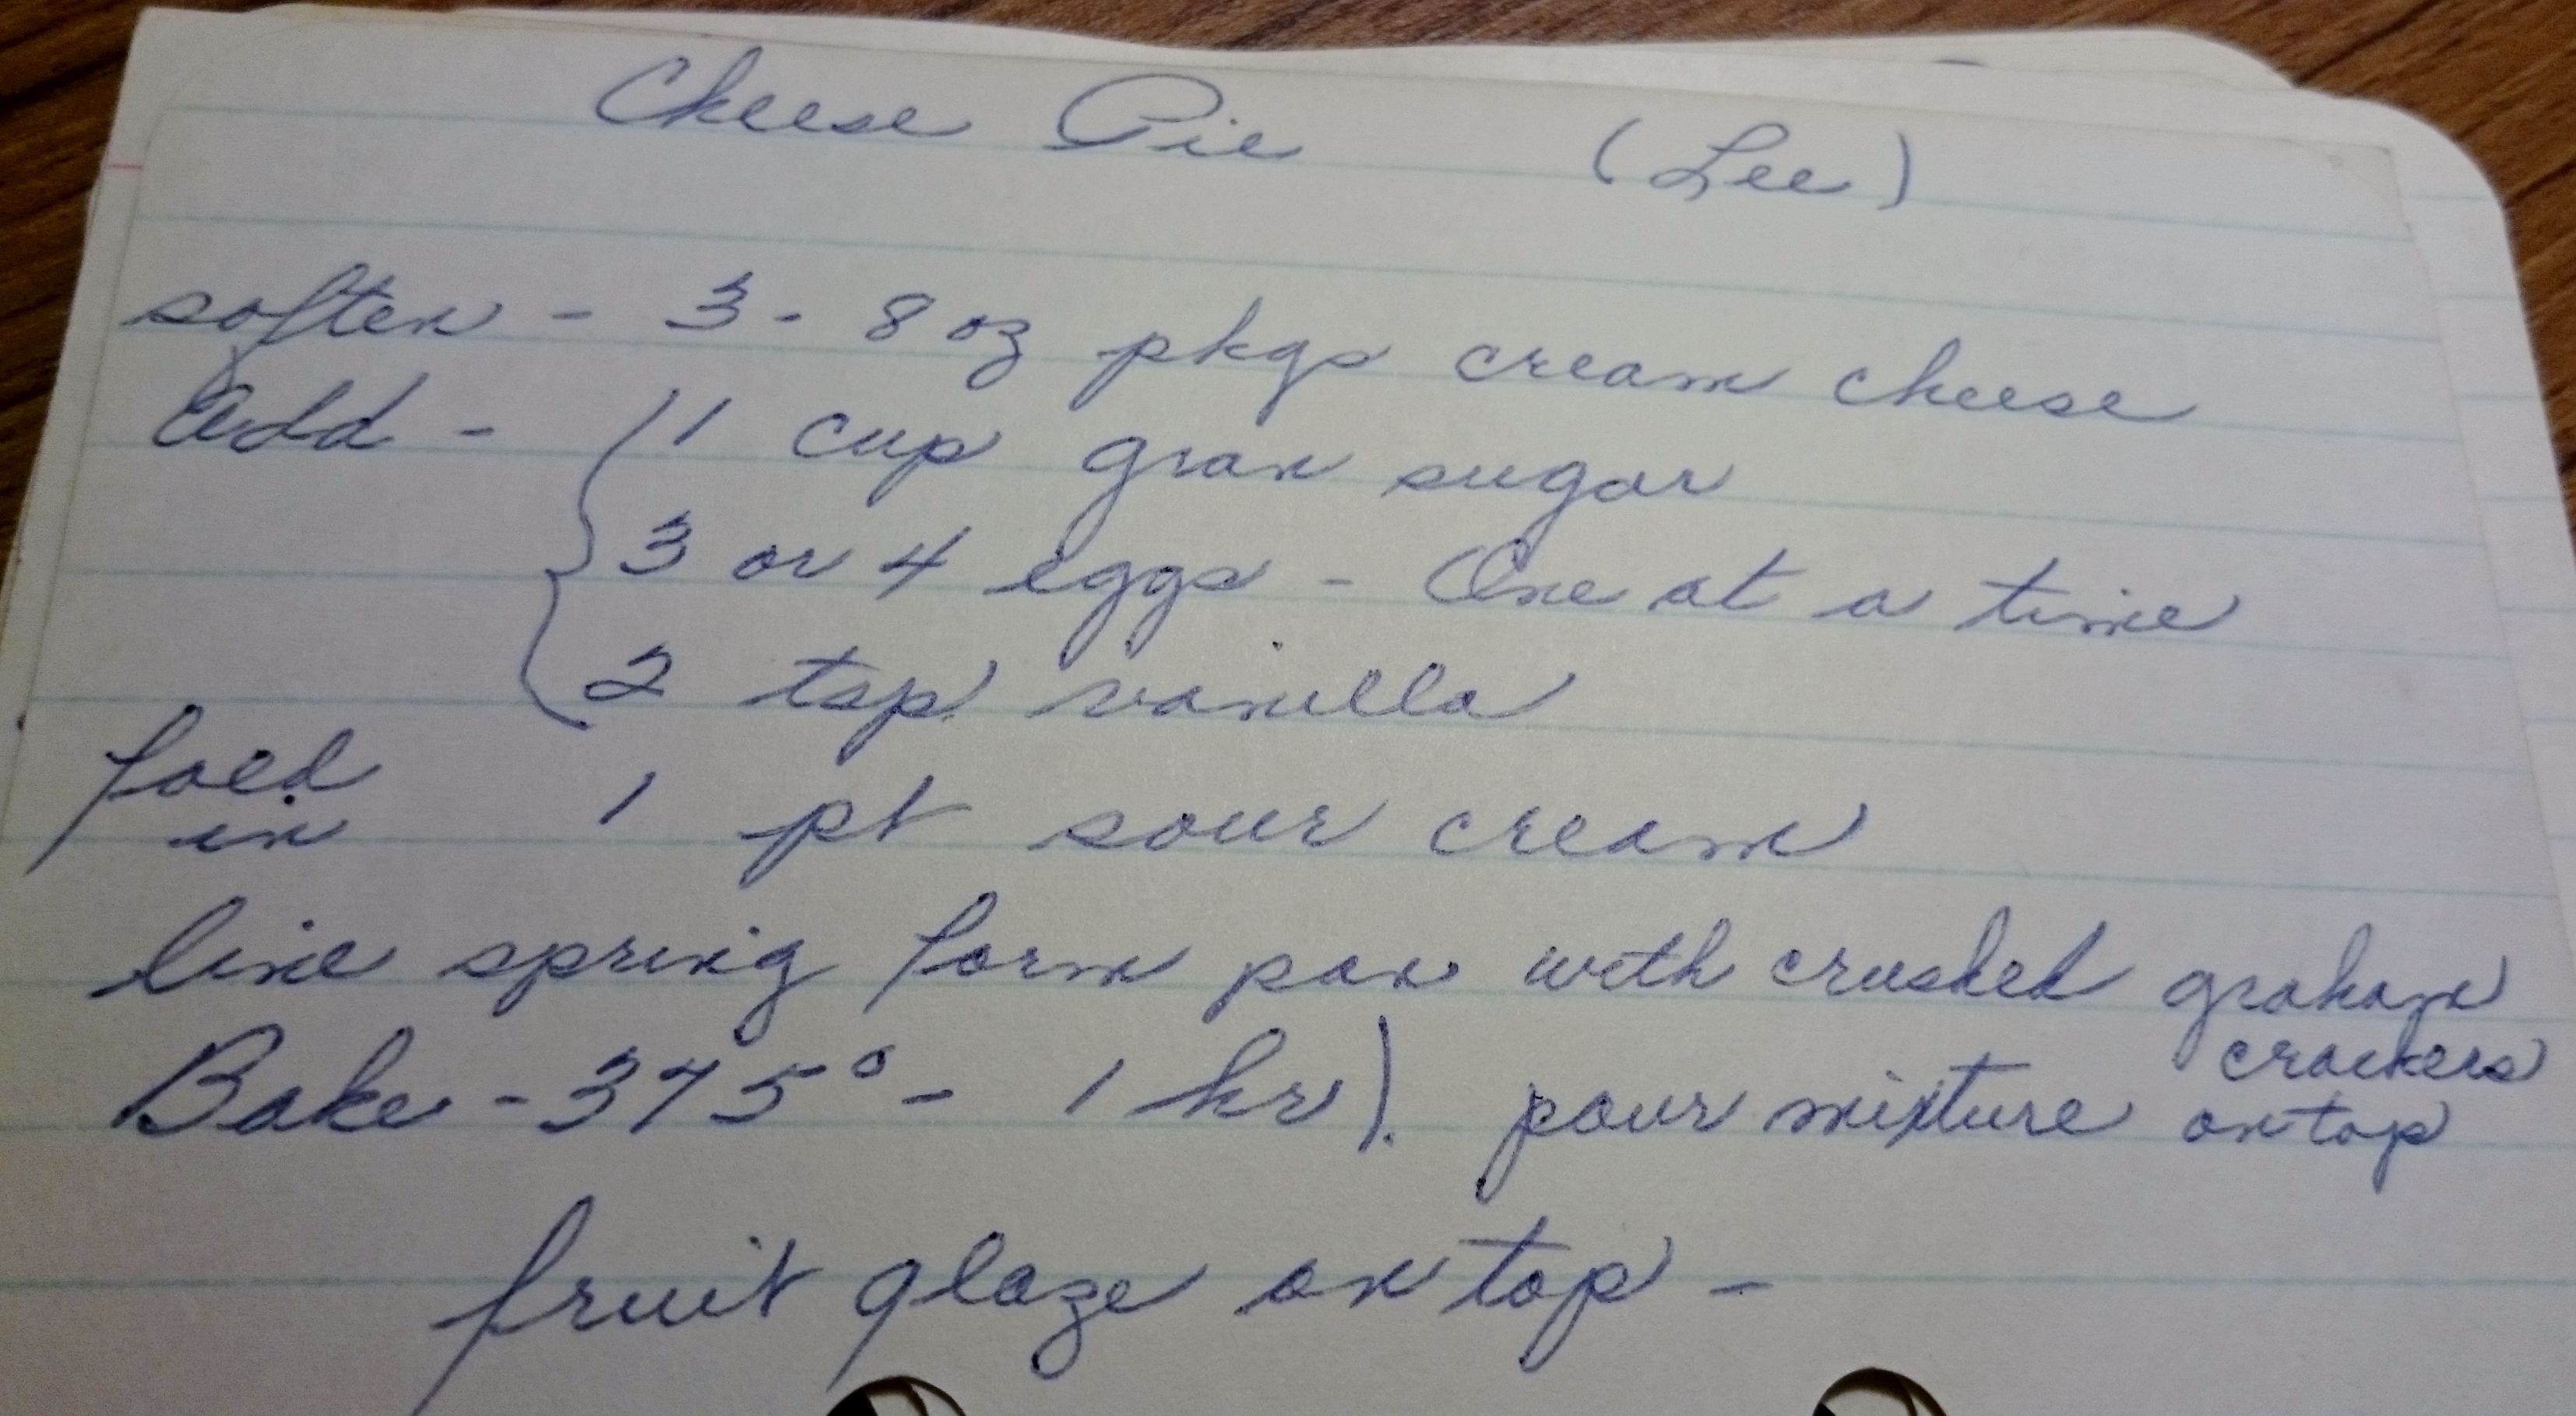 Cheese Pie (Lee)
soften - 3 - 8 oz pkgs cream cheese
Add - { 1 cup gran sugar
3 or 4 eggs - One at a time
2 tsp vanilla
fold
in 1 pt sour cream
line spring form pan with crushed graham
crackers
Bake - 375° - 1 hr). pour mixture on top
fruit glaze on top -